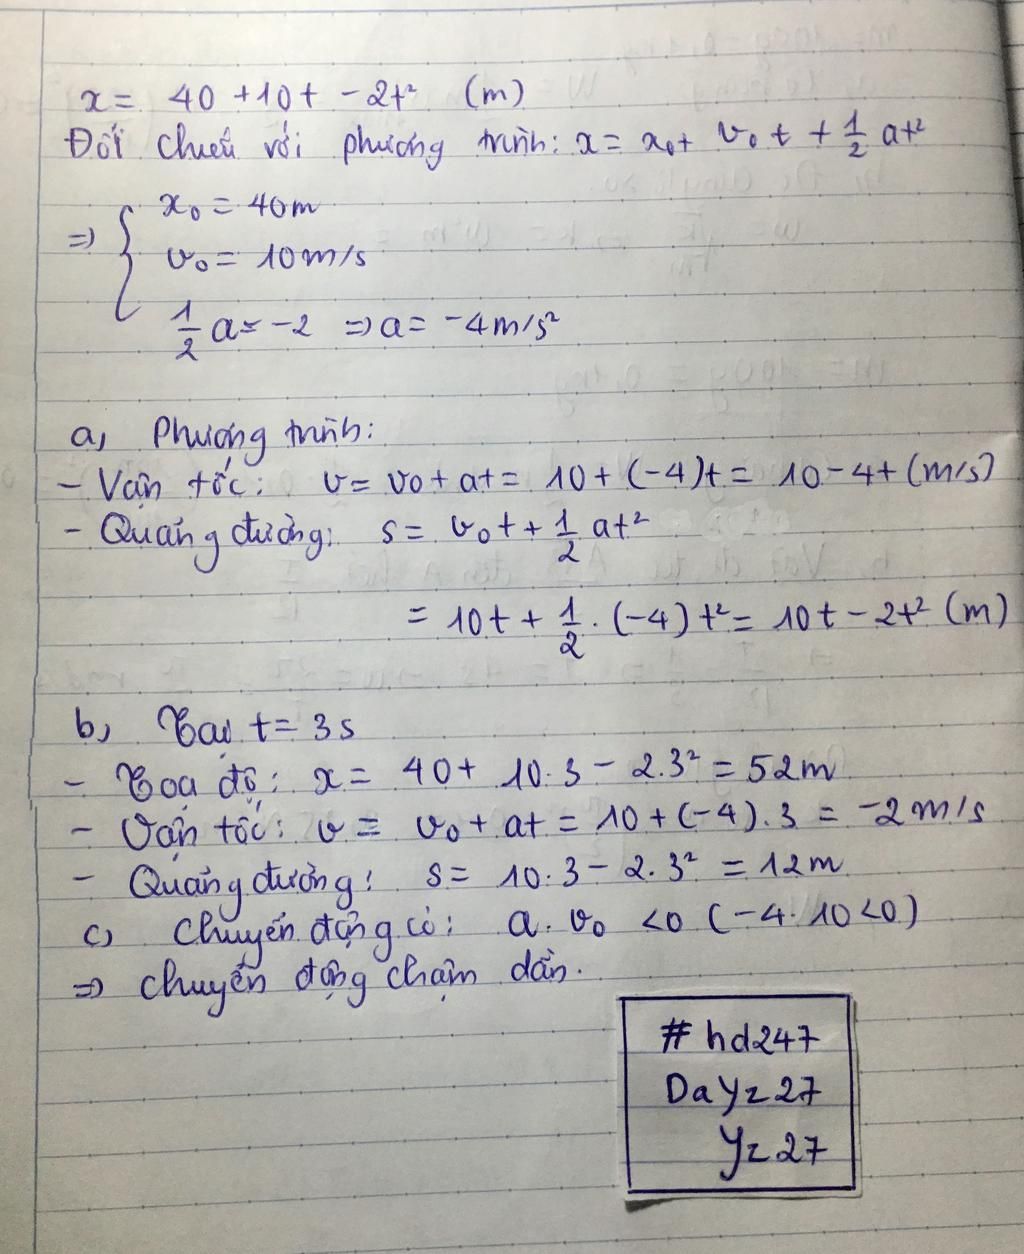 x = 40 + 10t - 2t² (m)
Đối chiếu với phương trình: x = x₀ + v₀t + 1/2 at²
=> { x₀ = 40m
v₀ = 10m/s
1/2 a = -2 => a = -4m/s²
a, Phương trình:
- Vận tốc: v = v₀ + at = 10 + (-4)t = 10 - 4t (m/s)
- Quãng đường: s = v₀t + 1/2 at²
= 10t + 1/2 . (-4) t² = 10t - 2t² (m)
b, Tại t = 3s
- Tọa độ: x = 40 + 10.3 - 2.3² = 52m
- Vận tốc: v = v₀ + at = 10 + (-4).3 = -2m/s
- Quãng đường: s = 10.3 - 2.3² = 12m
c, Chuyển động có: a.v₀ <0 (-4.10<0)
=> chuyển động chậm dần.
# hd247
DaYz27
Yz27